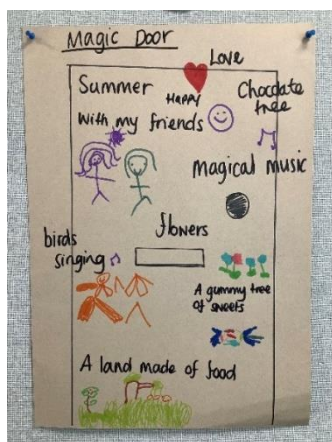 Magic Door
Love
Summer
Happy
Chocolate
tree
With my friends
magical music
flowers
birds
singing
A gummy tree
of sweets
A land made of food